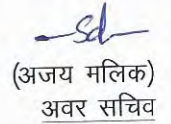 Sd
(अजय मलिक)
अवर सचिव